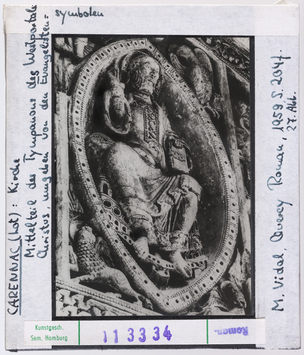 CARENNAC (Lot): Kirche
Mittelteil des Tympanons des Westportals
Christus, umgeben von den Evangelisten=
symbolen
M. Vidal, Quercy Roman, 1959 S. 204f.
27. Abb.
Kunstgesch.
Sem. Hamburg
113334
Roman.